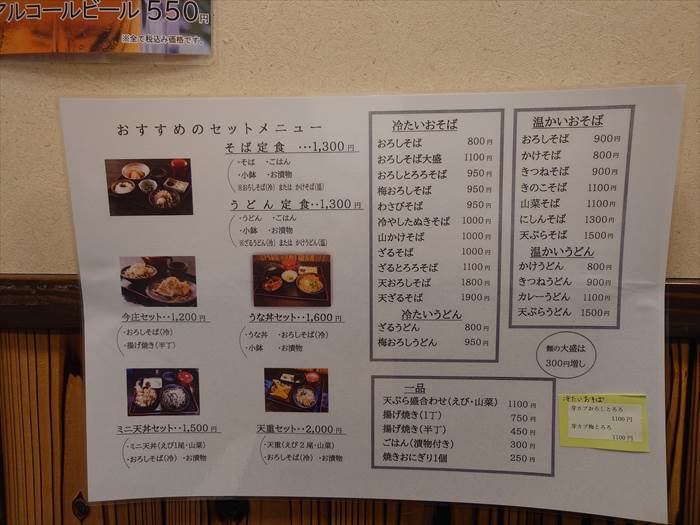 アルコールビール 550円
※全て税込み価格です。
おすすめのセットメニュー
そば定食 ‥‥1,300円
・そば ・ごはん
・小鉢 ・お漬物
※おろしそば(冷) または かけそば(温)
うどん定食‥1,300円
・うどん ・ごはん
・小鉢 ・お漬物
※ざるうどん(冷) または かけうどん(温)
今庄セット‥1,200円
・おろしそば(冷)
・揚げ焼き(半丁)
うな丼セット‥1,600円
・うな丼 ・おろしそば(冷)
・小鉢 ・お漬物
ミニ天丼セット‥1,500円
・ミニ天丼(えび1尾・山菜)
・おろしそば(冷) ・お漬物
天重セット‥2,000円
・天重(えび2尾・山菜)
・おろしそば(冷) ・お漬物
冷たいおそば
おろしそば 800円
おろしそば大盛 1100円
おろしとろろそば 950円
梅おろしそば 950円
わさびそば 950円
冷やしたぬきそば 1000円
山かけそば 1000円
ざるそば 1000円
ざるとろろそば 1100円
天おろしそば 1800円
天ざるそば 1900円
冷たいうどん
ざるうどん 800円
梅おろしうどん 950円
温かいおそば
おろしそば 900円
かけそば 800円
きつねそば 900円
きのこそば 1100円
山菜そば 1100円
にしんそば 1300円
天ぷらそば 1500円
温かいうどん
かけうどん 800円
きつねうどん 900円
カレーうどん 1100円
天ぷらうどん 1500円
麺の大盛は
300円増し
一品
天ぷら盛合わせ(えび・山菜) 1100円
揚げ焼き(1丁) 750円
揚げ焼き(半丁) 450円
ごはん(漬物付き) 300円
焼きおにぎり1個 250円
冷たいおそば
芽カブおろしとろろ
1100円
芽カブ梅とろろ
1100円